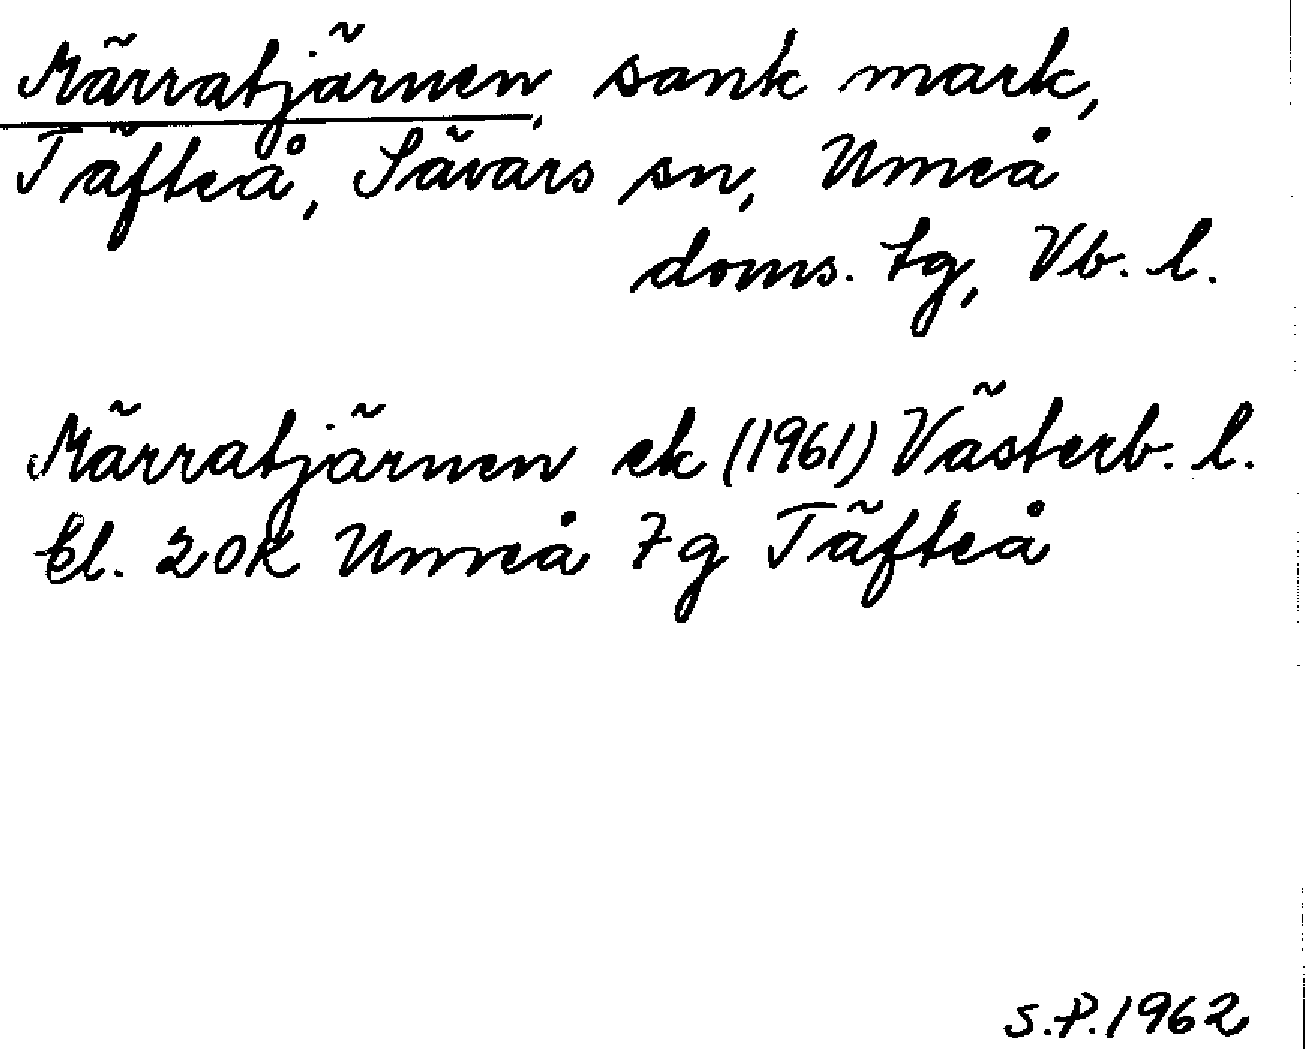 Märratjärnen, sank mark,
Täfteå, Sävars sn, Umeå
doms. tg, Vb. l.
Märratjärnen ek (1961) Västerb. l.
Bl. 20K Umeå 7g Täfteå
S.P. 1962